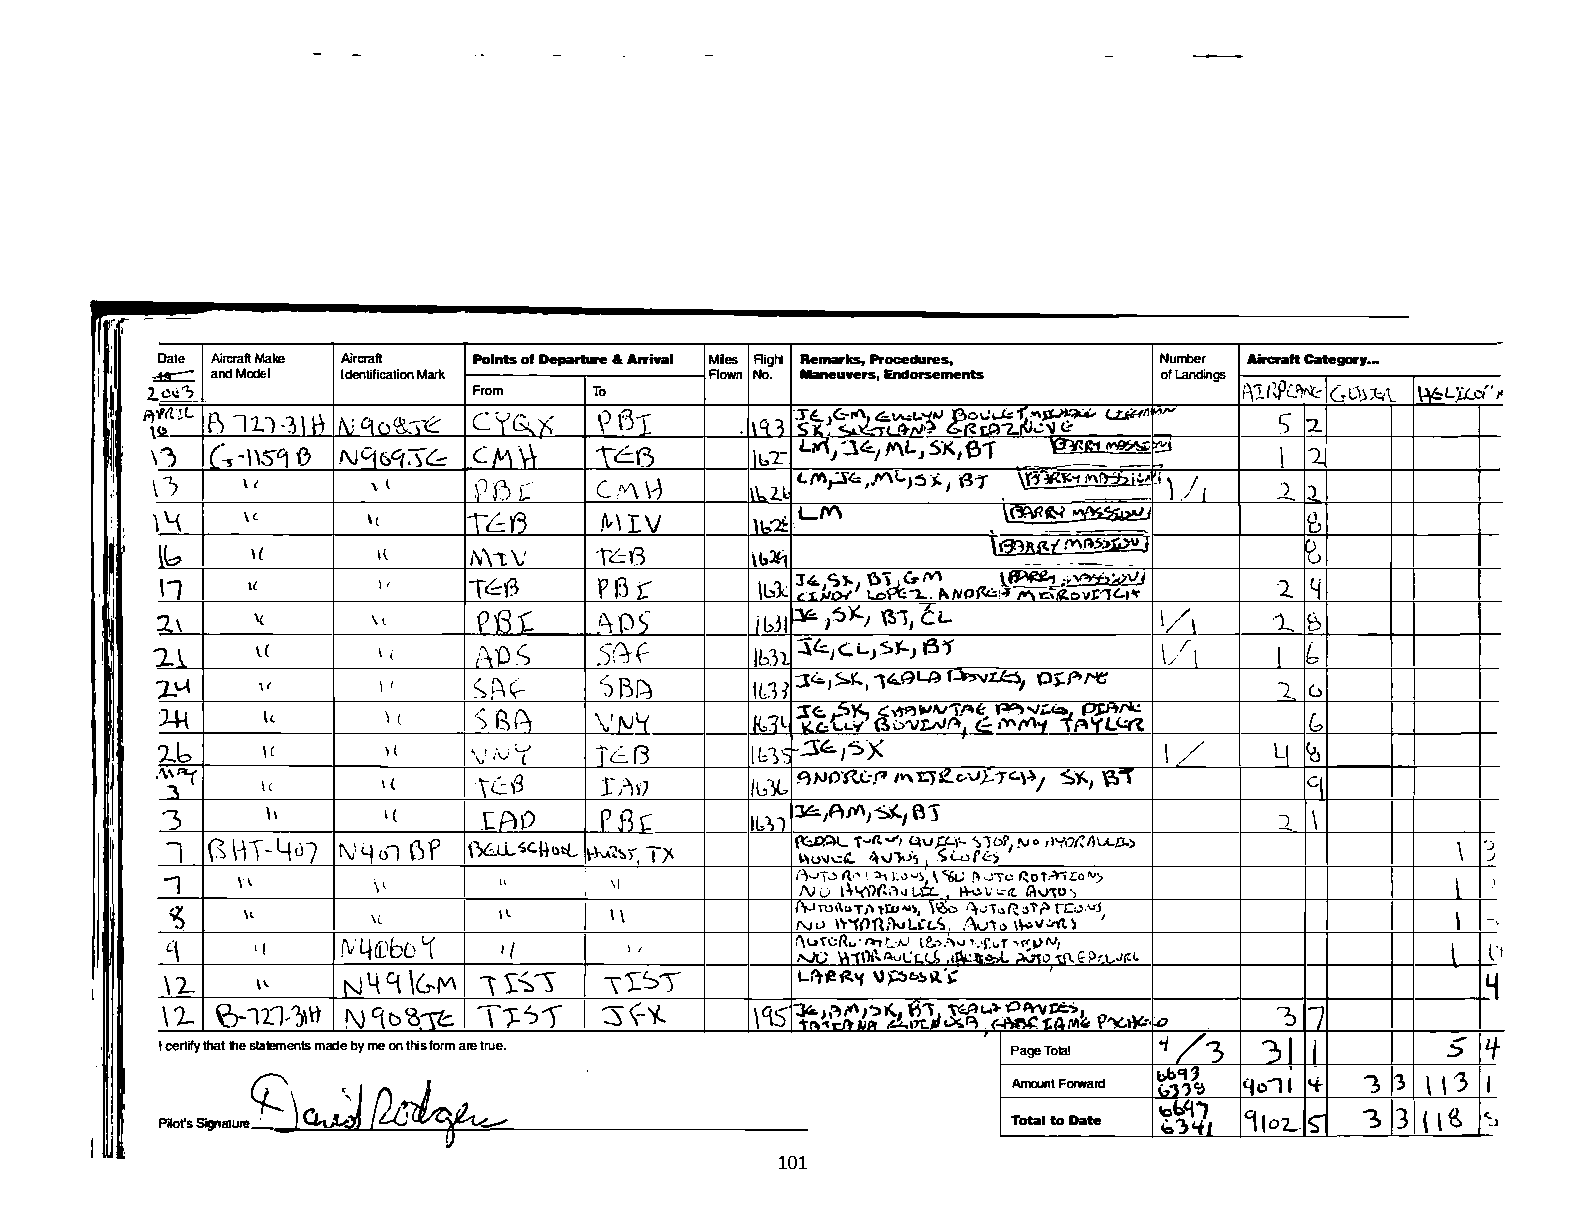 Date Aircraft Make Aircraft Points of Departure & Arrival Miles Flight Remarks, Procedures, Number Aircraft Category...
and Model Identification Mark Flown No. Maneuvers, Endorsements of Landings
2003 From To AIRPLANE GLIDER
APRIL
10 B-727-31H N908JE CYQX PBI 193 JE, GM, EVELYN BOULET, 5 2
SK,
13 G-1159B N909JE CMH TEB 1627 LM, JE, ML, SK, BT BARRY MASSION 1 2
13 " " PBI CMH 1626 LM, JE, ML, SK, BT BARRY MASSION 1/1 2 2
14 " " TEB MIV 1628 LM BARRY MASSION 8
16 " " MIV TEB 1629 BARRY MASSION 8
17 " " TEB PBI 1630 JE, SK, BT, GM BARRY MASSION 2 4
CINDY LOPEZ, ANDREA MITROVITCH
21 " " PBI ADS 1631 JE, SK, BT, CL 1/1 2 8
21 " " ADS SAF 1632 JE, CL, SK, BT 1/1 1 6
24 " " SAF SBA 1633 JE, SK, TEALA DAVIES, DIANE 2 0
24 " " SBA VNY 1634 JE, SK, DAVIES, DIANE 6
KELLY BOVINA, EMMY TAYLER
26 " " VNY TEB 1635 JE, SK 1/ 4 8
MAY
3 " " TEB IAD 1636 ANDREA MITROVITCH, SK, BT 9
3 " " IAD PBI 1637 JE, AM, SK, BT 2 1
7 BHT-407 N407BP BELL SCHOOL HURST, TX PEDAL TURNS, QUICK STOP, NO HYDRAULICS 1 3
HOVER AUTOS, SLOPES
7 " " " " AUTOROTATIONS, 180 AUTOROTATIONS 1
NO HYDRAULIC, HOVER AUTOS
8 " " " " AUTOROTATIONS, 180 AUTOROTATIONS, 1
NO HYDRAULICS, AUTO HOVERS
9 " N4060Y " " 1
NO HYDRAULICS,
12 " N491GM TIST TIST LARRY 4
12 B-727-31H N908JE TIST JFK 195 JE, AM, SK, BT, TEALA DAVIES, 3 7
I certify that the statements made by me on this form are true. Page Total 4/3 31 1 5 4
Amount Forward 6693 6338 9071 4 3 3 113 1
Pilot's Signature David Rodgers Total to Date 6697 6341 9102 5 3 3 118
101